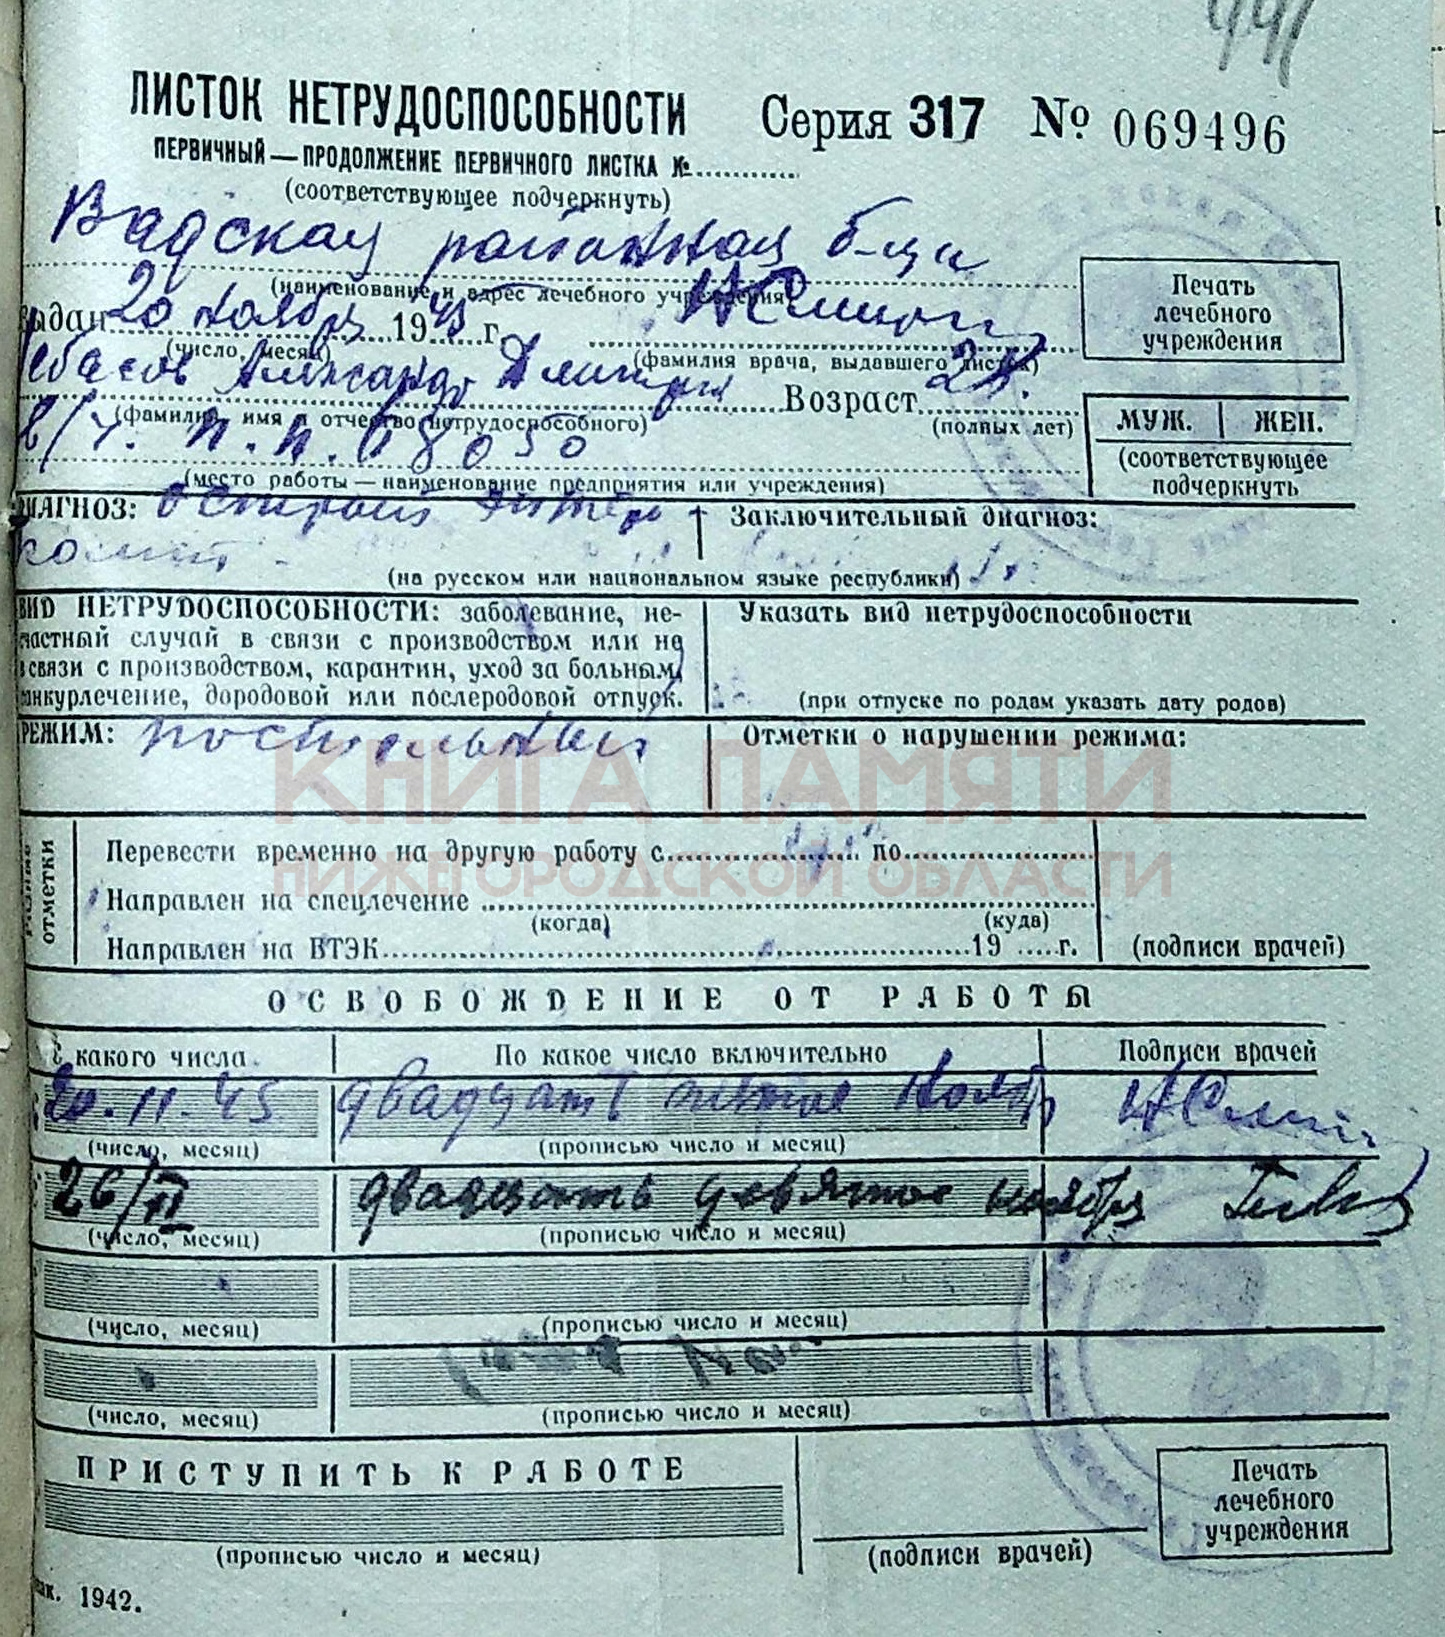 ЛИСТОК НЕТРУДОСПОСОБНОСТИ Серия 317 № 069496
ПЕРВИЧНЫЙ — ПРОДОЛЖЕНИЕ ПЕРВИЧНОГО ЛИСТКА №
(соответствующее подчеркнуть)
Вадская районная б-ца
(наименование и адрес лечебного учреждения)
Печать
лечебного
учреждения
ыдан 20 ноября 1945 г.
(число, месяц) (фамилия врача, выдавшего листок)
Александр Дмитри Возраст
(фамилия, имя и отчество нетрудоспособного) (полных лет)
МУЖ. ЖЕН.
(соответствующее
подчеркнуть
в/ч. п.п. 68050
(место работы — наименование предприятия или учреждения)
ИАГНОЗ: Острый энтеро
колит. Заключительный диагноз:
(на русском или национальном языке республики)
ВИД НЕТРУДОСПОСОБНОСТИ: заболевание, не-
частный случай в связи с производством или не
в связи с производством, карантин, уход за больным,
анкурлечение, дородовой или послеродовой отпуск.
Указать вид нетрудоспособности
(при отпуске по родам указать дату родов)
РЕЖИМ: постельный Отметки о нарушении режима:
КНИГА ПАМЯТИ
НИЖЕГОРОДСКОЙ ОБЛАСТИ
отметки
Перевести временно на другую работу с по
Направлен на спецлечение
(когда) (куда)
Направлен на ВТЭК 19 г. (подписи врачей)
ОСВОБОЖДЕНИЕ ОТ РАБОТЫ
С какого числа По какое число включительно Подписи врачей
20.11.45 двадцат пятое нояб
(число, месяц) (прописью число и месяц)
26/II двадцать девятое ноября
(число, месяц) (прописью число и месяц)
(число, месяц) (прописью число и месяц)
(число, месяц) (прописью число и месяц)
ПРИСТУПИТЬ К РАБОТЕ
(прописью число и месяц) (подписи врачей)
Печать
лечебного
учреждения
ак. 1942.